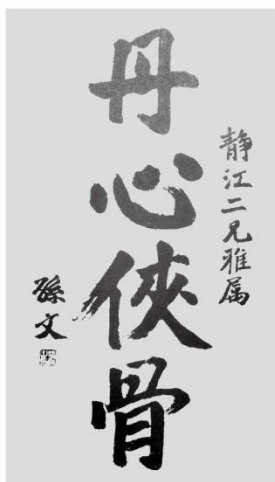 静江二兄雅属
丹心俠骨
孫文